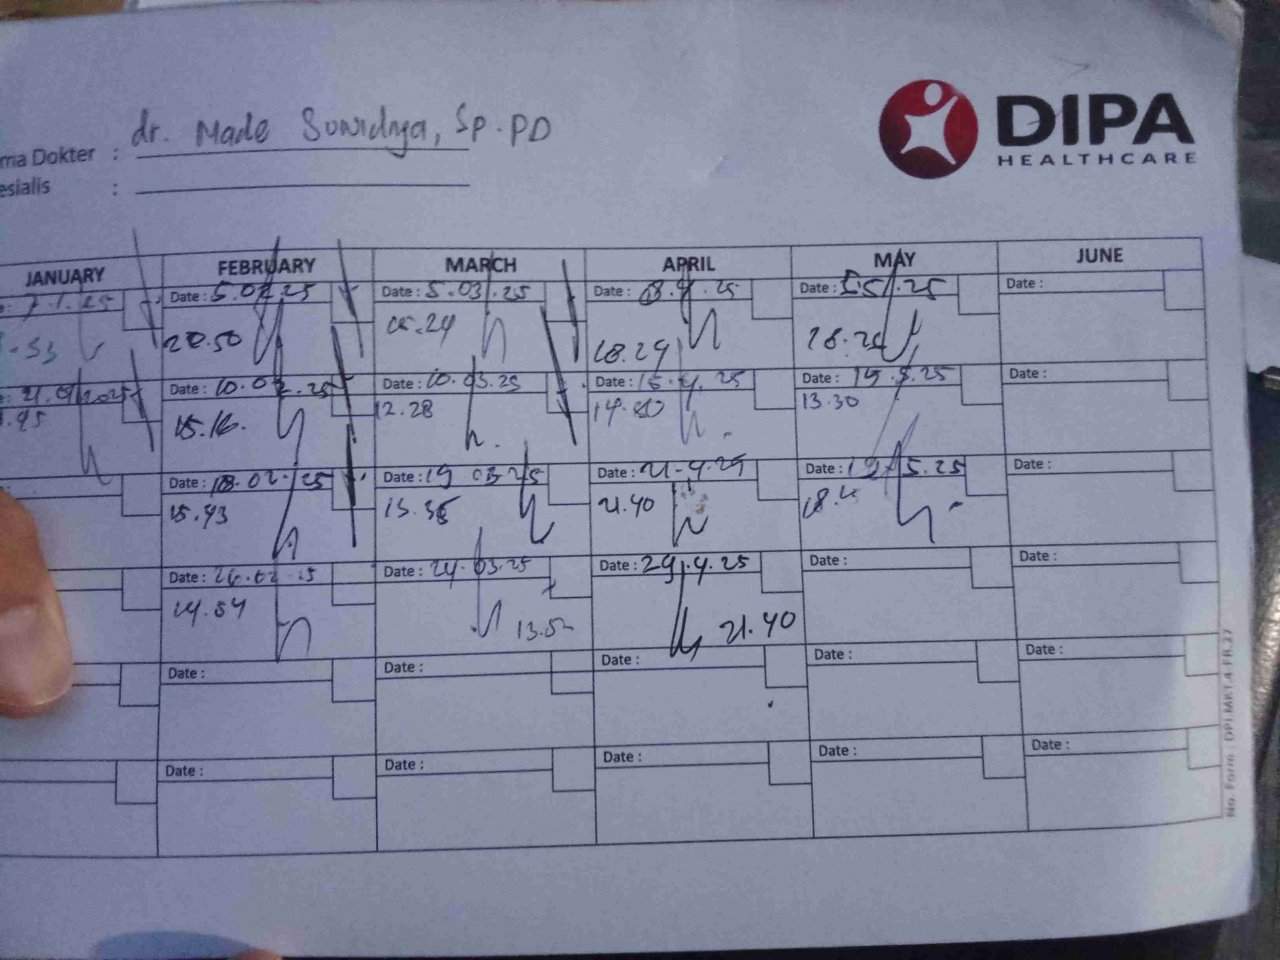 DIPA
HEALTHCARE
dr. Made Suwidnya, Sp.PD
ma Dokter :
esialis :
JANUARY FEBRUARY MARCH APRIL MAY JUNE
7.1.25 Date : 5.02.25 Date : 5.03.25 Date : 8.4.25 Date : 5.5.25 Date :
20.50 18.29
Date : 10.02.25 Date : 10.03.25 Date : 15.4.25 Date : 19.5.25 Date :
15.16. 12.28 13.30
Date : 18.02.25 Date : 19 03.25 Date : 21-4.25 Date : 19.5.25 Date :
15.43 21.40
Date : 26.02.25 Date : 24.03.25 Date : 29.4.25 Date : Date :
14.54 21.40
Date : Date : Date : Date : Date :
Date : Date : Date : Date : Date :
No. Form : DPI.MKT.4.FR.27